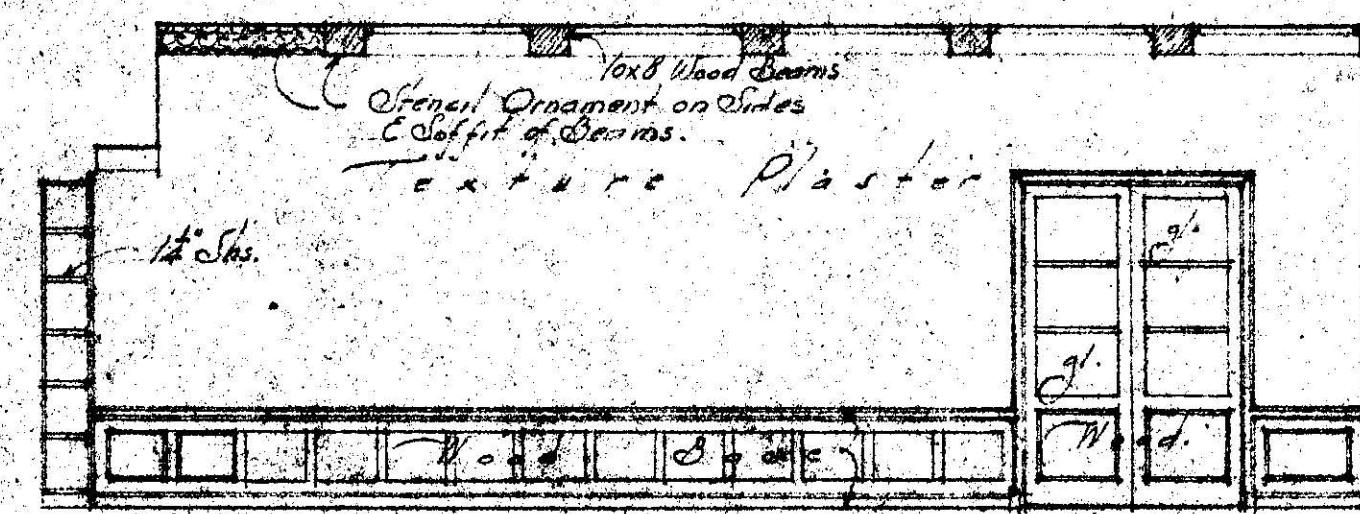 10x8 Wood Beams
Stencil Ornament on Sides
& Soffit of Beams.
Texture Plaster
1¼" Shs.
gl.
gl.
Wood Base
Wood.